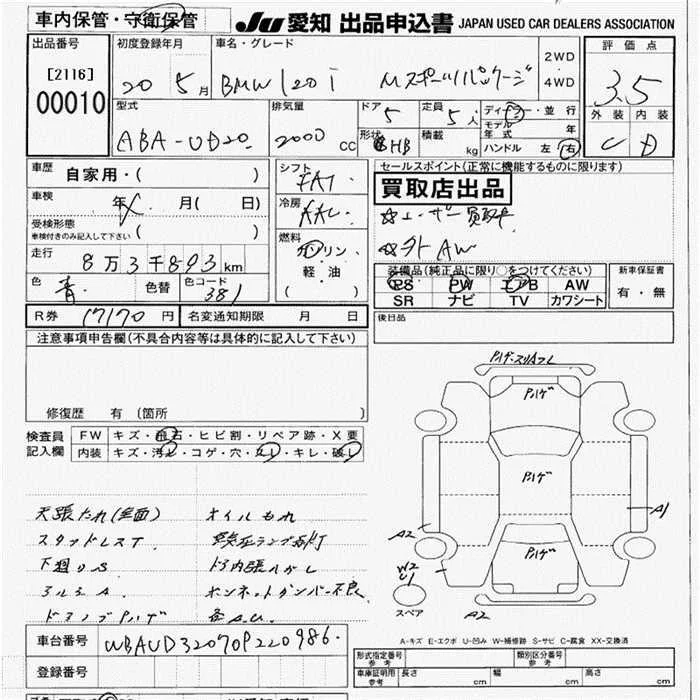 車内保管・守衛保管
JU 愛知 出品申込書 JAPAN USED CAR DEALERS ASSOCIATION
出品番号
[2116]
00010
初度登録年月
20 5月
車名・グレード
BMW 120i Mスポーツパッケージ
2WD
4WD
評価点
3.5
外装 内装
C D
型式
ABA-UD20
排気量
2000 cc
ドア
5
定員
5人
形状
HB
積載
kg
ディーラー・並行
モデル年式 年
ハンドル 左 右
車歴
自家用・( )
車検
年 月( 日)
受検形態
車検付きのみ記入して下さい ( )
走行
8万3千893km
色
青
色替
色コード
381
シフト
FAT
冷房
AAC
燃料
ガソリン
軽・油
( )
セールスポイント(正常に機能するものに限ります)
買取店出品
☆ユーザー買取車
☆外AW
装備品(純正品に限り○をつけてください)
PS PW エアB AW
SR ナビ TV カワシート
新車保証書
有・無
後日品
R券 17170円
名変通知期限 月 日
注意事項申告欄(不具合内容等は具体的に記入して下さい)
修復歴 有(箇所 )
検査員
記入欄
FW キズ・飛石・ヒビ割・リペア跡・X要
内装 キズ・汚レ・コゲ・穴・スレ・キレ・破レ
天張たれ(全面) オイルもれ
スタッドレスT
下廻りS ドア内張はがし
アルミA ボンネットダンパー不良
ドアノブPハゲ
Pハゲ・スリムフL
Pハゲ
Pハゲ
Pハゲ
A1
A2
W2
U1
スペア
A2
A-キズ E-エクボ U-凹み W-補修跡 S-サビ C-腐食 XX-交換済
車台番号 WBAUD32070P220986
登録番号
形式指定番号
参考
類別区分番号
参考
車庫証明用
参考
長さ cm
幅 cm
高さ cm